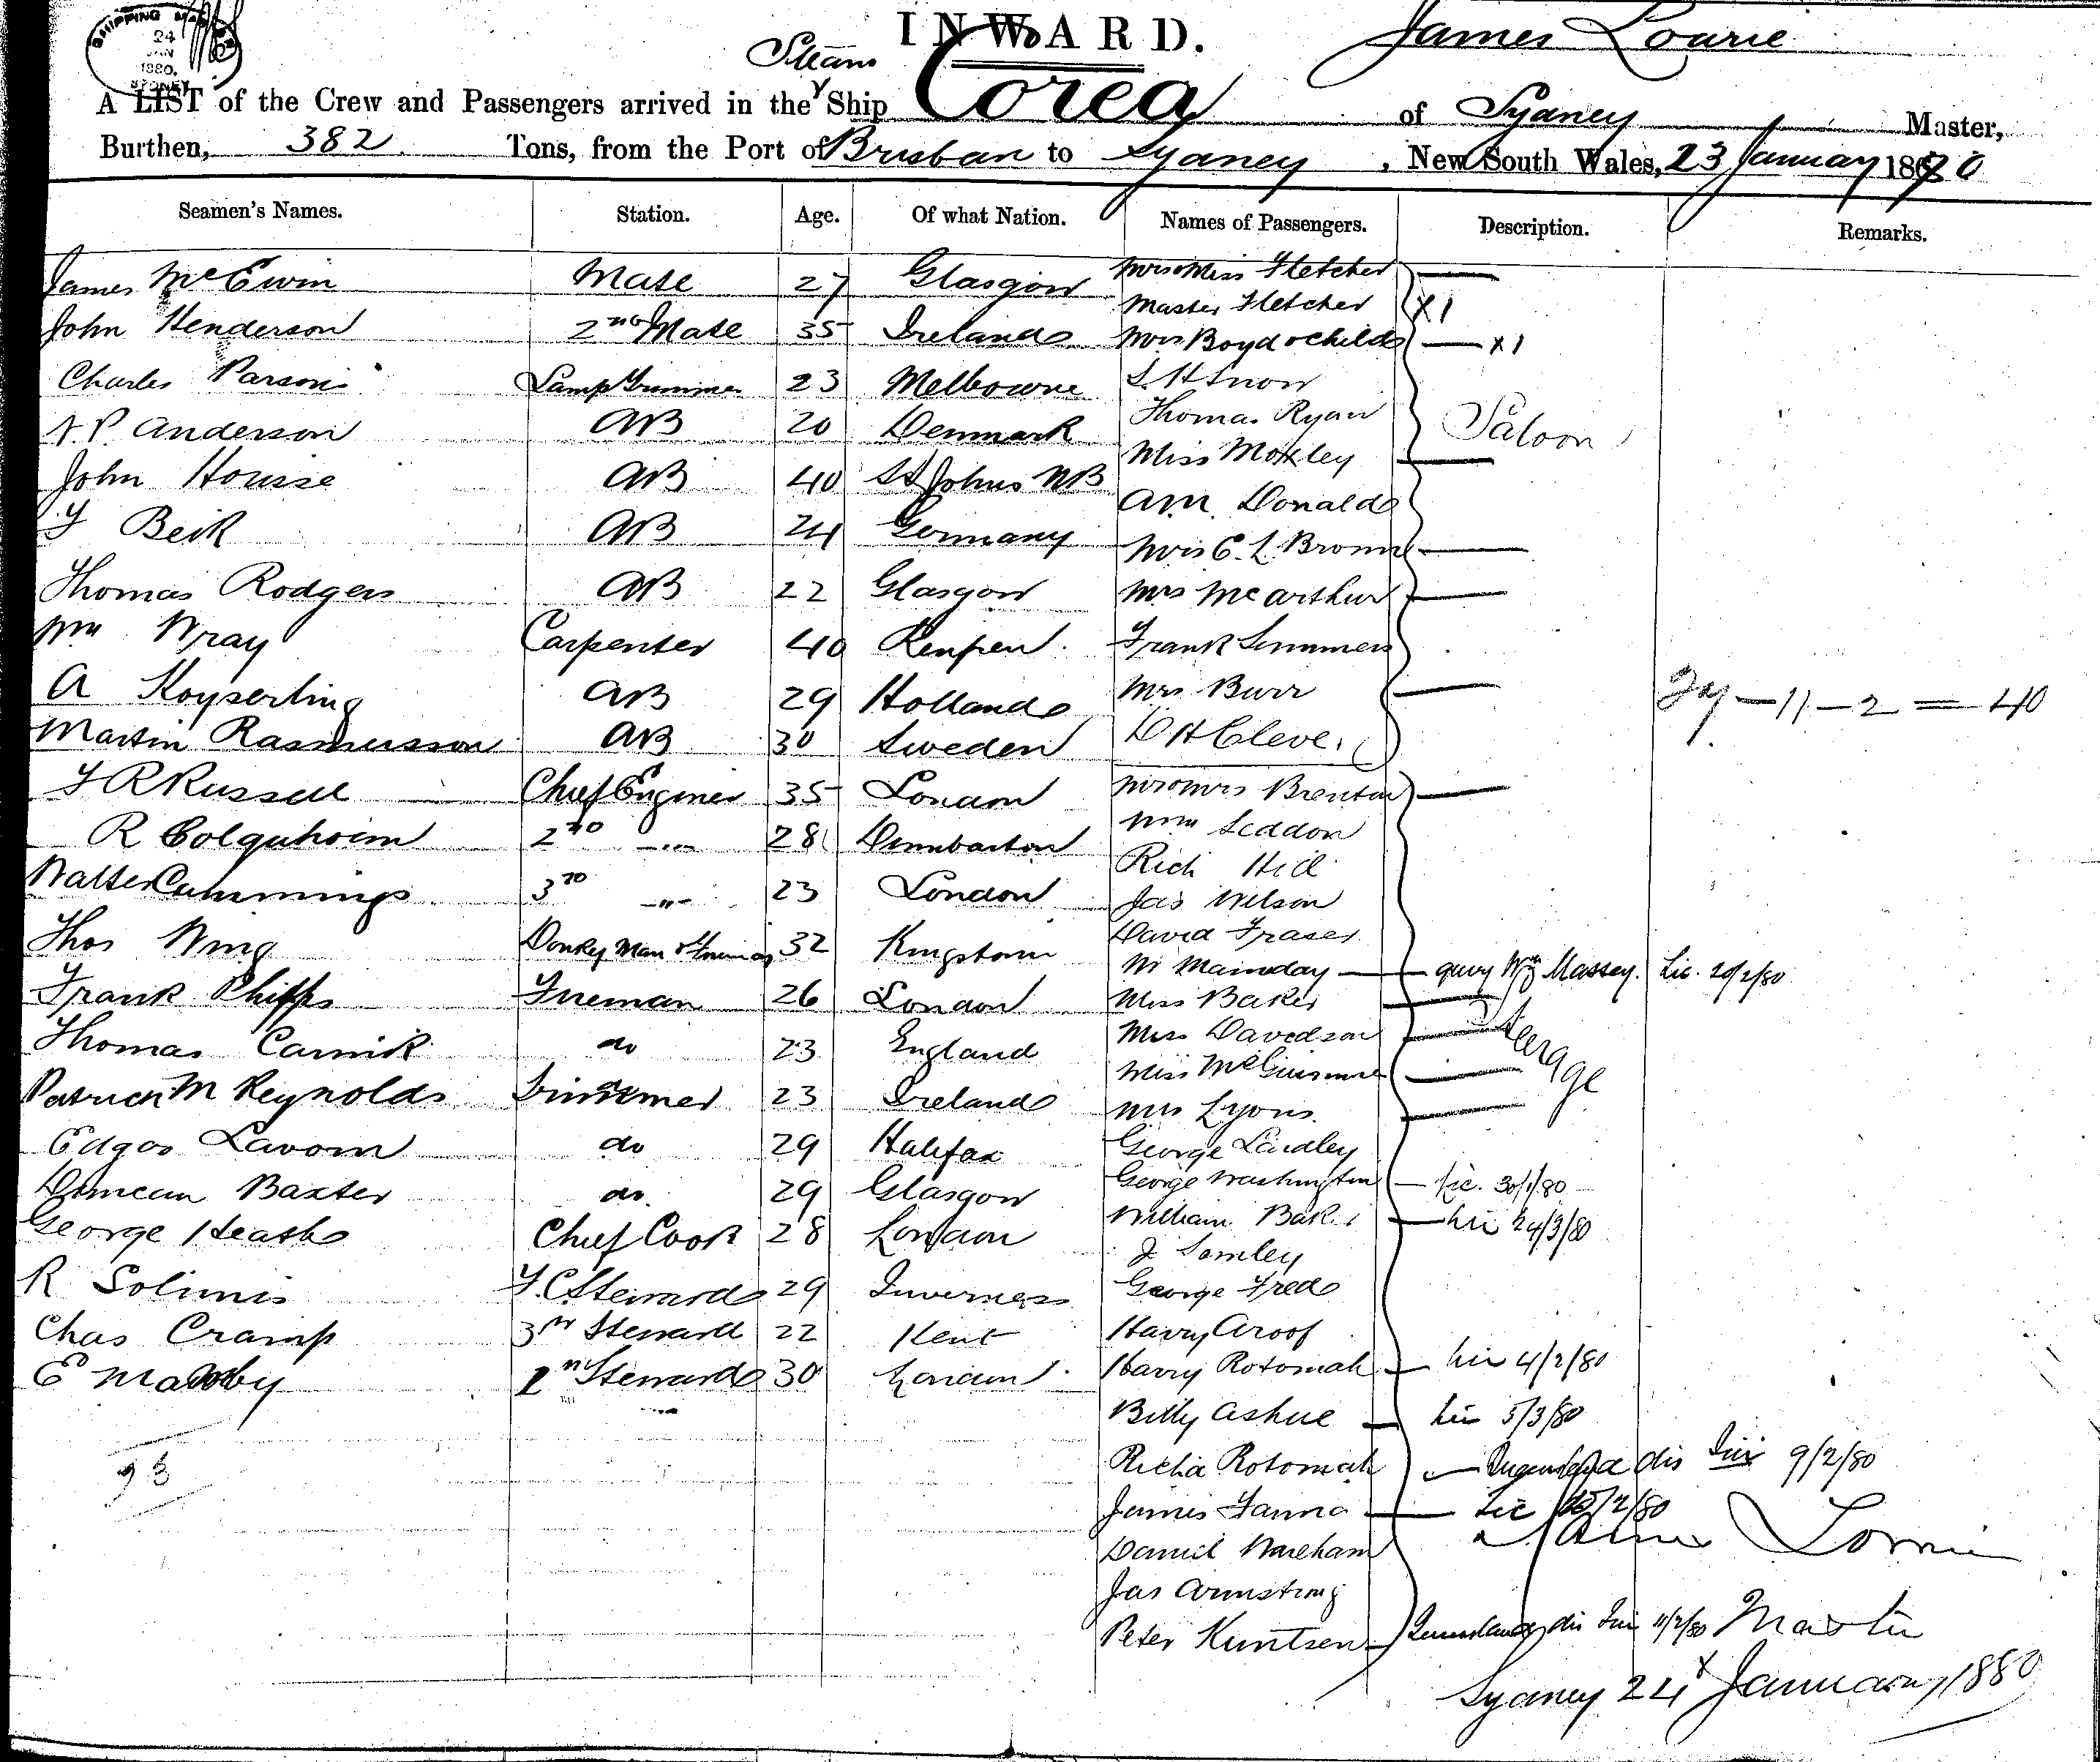 SHIPPING MASTER
24
JAN
1880.
SYDNEY
INWARD.
James Lowrie
Steam
A LIST of the Crew and Passengers arrived in the Ship Corea of Sydney Master,
Burthen, 382 Tons, from the Port of Brisban to Sydney, New South Wales, 23 January 1880
Seamen's Names. Station. Age. Of what Nation. Names of Passengers. Description. Remarks.
James McEwin Mate 27 Glasgow Miss Fletcher
Master Fletcher X1
John Henderson 2nd Mate 35 Ireland Mrs Boyd & Child X1
Charles Parson Lamp Trimmer 23 Melbourne Snow
Thomas Ryan
P. Anderson AB 20 Denmark Saloon
Miss Moxley
John Housse AB 40 St Johns NB
A.M. Donald
Beik AB 24 Germany
Mrs C. L. Browne
Thomas Rodgers AB 22 Glasgow Mrs McArthur
Wm Wray Carpenter 40 Frank Simmers
A Koyserling AB 29 Holland Mrs Burr 27 — 11 — 2 = 40
Martin Rasmusson AB 30 Sweden D H Cleve
Russell Chief Enginer 35 London Mr & Mrs Brenton
R Colquhoun 2nd 〃 28 Dumbarton Wm Seddon
Rich Hill
Walter Cummings 3rd 〃 23 London Jas Wilson
David Fraser
Thos Wing Donkey Man 32 Kingstown query Wm Massey. Lic. 20/2/80
Frank Phipps Fireman 26 London Miss Baker
Thomas Carnick do 23 England Miss Davedson Steerage
Miss
Patrick M Reynolds Trimmer 23 Ireland Mrs Lyons
Edgar Lavom do 29 Halifax George Laidley
Duncan Baxter do 29 Glasgow George Washington Lic. 30/1/80
George Heath Chief Cook 28 London William Baker Lic 24/3/80
J Somley
R Solimis Steward 29 Inverness George Fred
Chas Cramp 3rd Steward 22 Kent Harry Aroof
E 2nd Steward 30 London Harry Rotomah Lic 4/2/80
Billy Ashue Lic 5/3/80
93 Rotomah dis Lic 9/2/80
James Tanna Lic 2/80
Daniel Wareham James Lowrie
Jas Armstrong
Peter Kuntsen dis Lic 11/2/80 Master
Sydney 24th January 1880